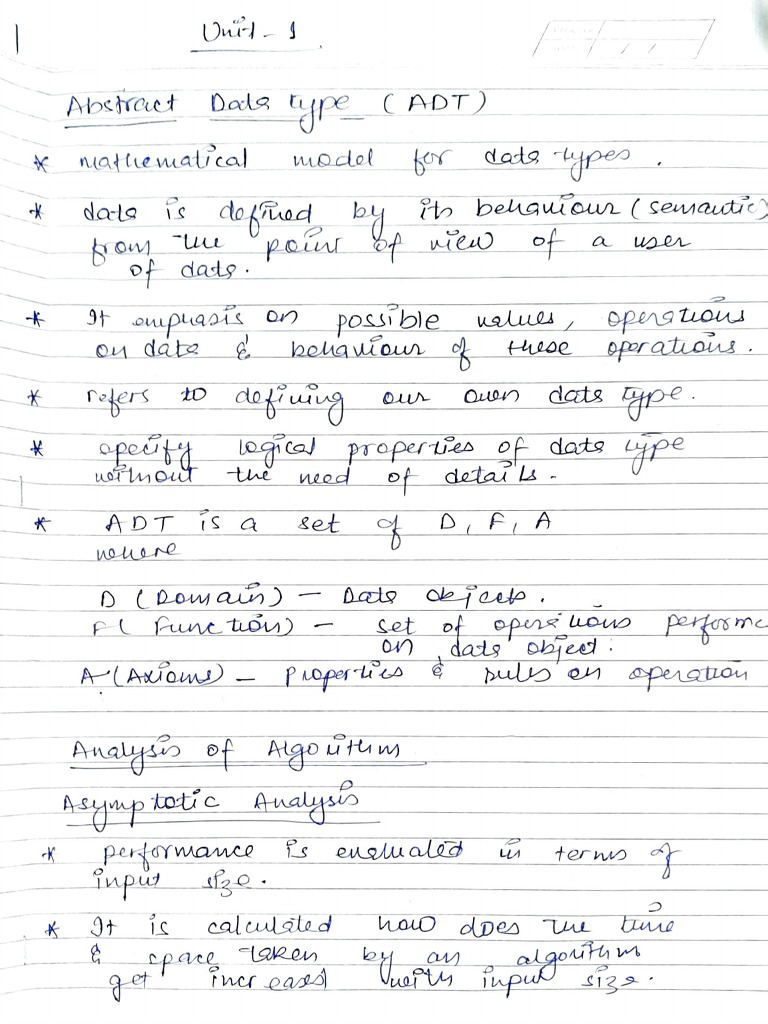 Unit - 1
Abstract Data type (ADT)
* mathematical model for data types .
* data is defined by its behaviour (semantic)
from the point of view of a user
of data.
* It emphasis on possible values, operations
on data & behaviour of these operations.
* refers to defining our own data type.
* specify logical properties of data type
without the need of details.
* ADT is a set of D, F, A
where
D (Domain) - Data objects.
F ( Function) - set of operations performe
on data object.
A (Axioms) - Properties & rules on operation
Analysis of Algorithm
Asymptotic Analysis
* performance is evaluated in terms of
input size.
* It is calculated how does the time
& space taken by an algorithm
get increased with input size.